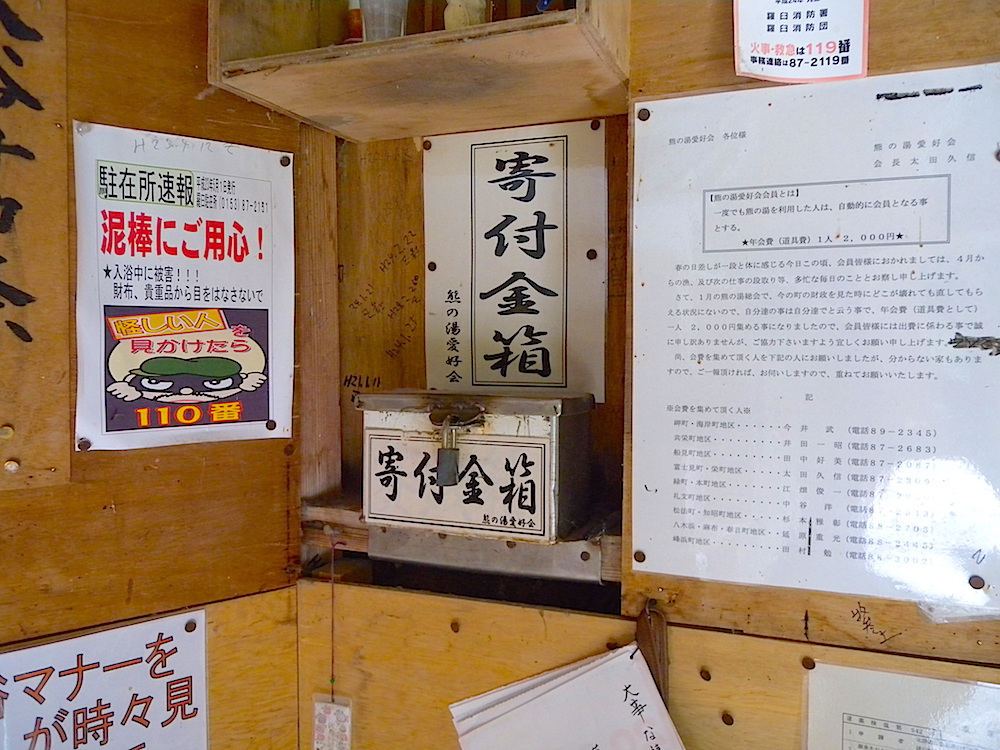 H24.4.12
駐在所速報
泥棒にご用心!
★入浴中に被害!!!
財布、貴重品から目をはなさないで
怪しい人を
見かけたら
110番
寄付金箱
熊の湯愛好会
寄付金箱
熊の湯愛好会
羅臼消防署
羅臼消防団
火事・救急は119番
事務連絡は87-2119番
熊の湯愛好会 各位様
熊の湯愛好会
会長太田久信
【熊の湯愛好会会員とは】
一度でも熊の湯を利用した人は、自動的に会員となる事
とする。
★年会費(道具費)1人 2,000円★
春の日差しが一段と体に感じる今日この頃、会員皆様におかれましては、4月か
らの漁、及び次の仕事の段取り等、多忙な毎日のこととお察し申し上げます。
さて、1月の熊の湯総会で、今の町の財政を見た時にどこが壊れても直してもら
える状況にないので、自分達の事は自分達でと云う事で、年会費(道具費として)
一人 2,000円集める事になりましたので、会員皆様には出費に係わる事で誠
に申し訳ありませんが、ご協力下さいますよう宜しくお願い申し上げます。
尚、会費を集めて頂く人を下記の人にお願いしましたが、分からない家もありま
すので、ご一報頂ければ、お伺いしますので、重ねてお願いいたします。
記
※会費を集めて頂く人※
岬町・海岸町地区・・・・・・今井 武(電話89-2345)
共栄町地区・・・・・・・・・井田一昭(電話87-2683)
船見町地区・・・・・・・・・田中好美
富士見町・栄町地区・・・・・太田久信
緑町・本町地区・・・・・・・江畑俊一
礼文町地区・・・・・・・・・中谷 洋
松法町・知昭町地区・・・・・杉本雅彰
八木浜・麻布・春日町地区・・延原重光
峰浜町地区・・・・・・・・・田村 勉
マナーを
が時々見
大事な